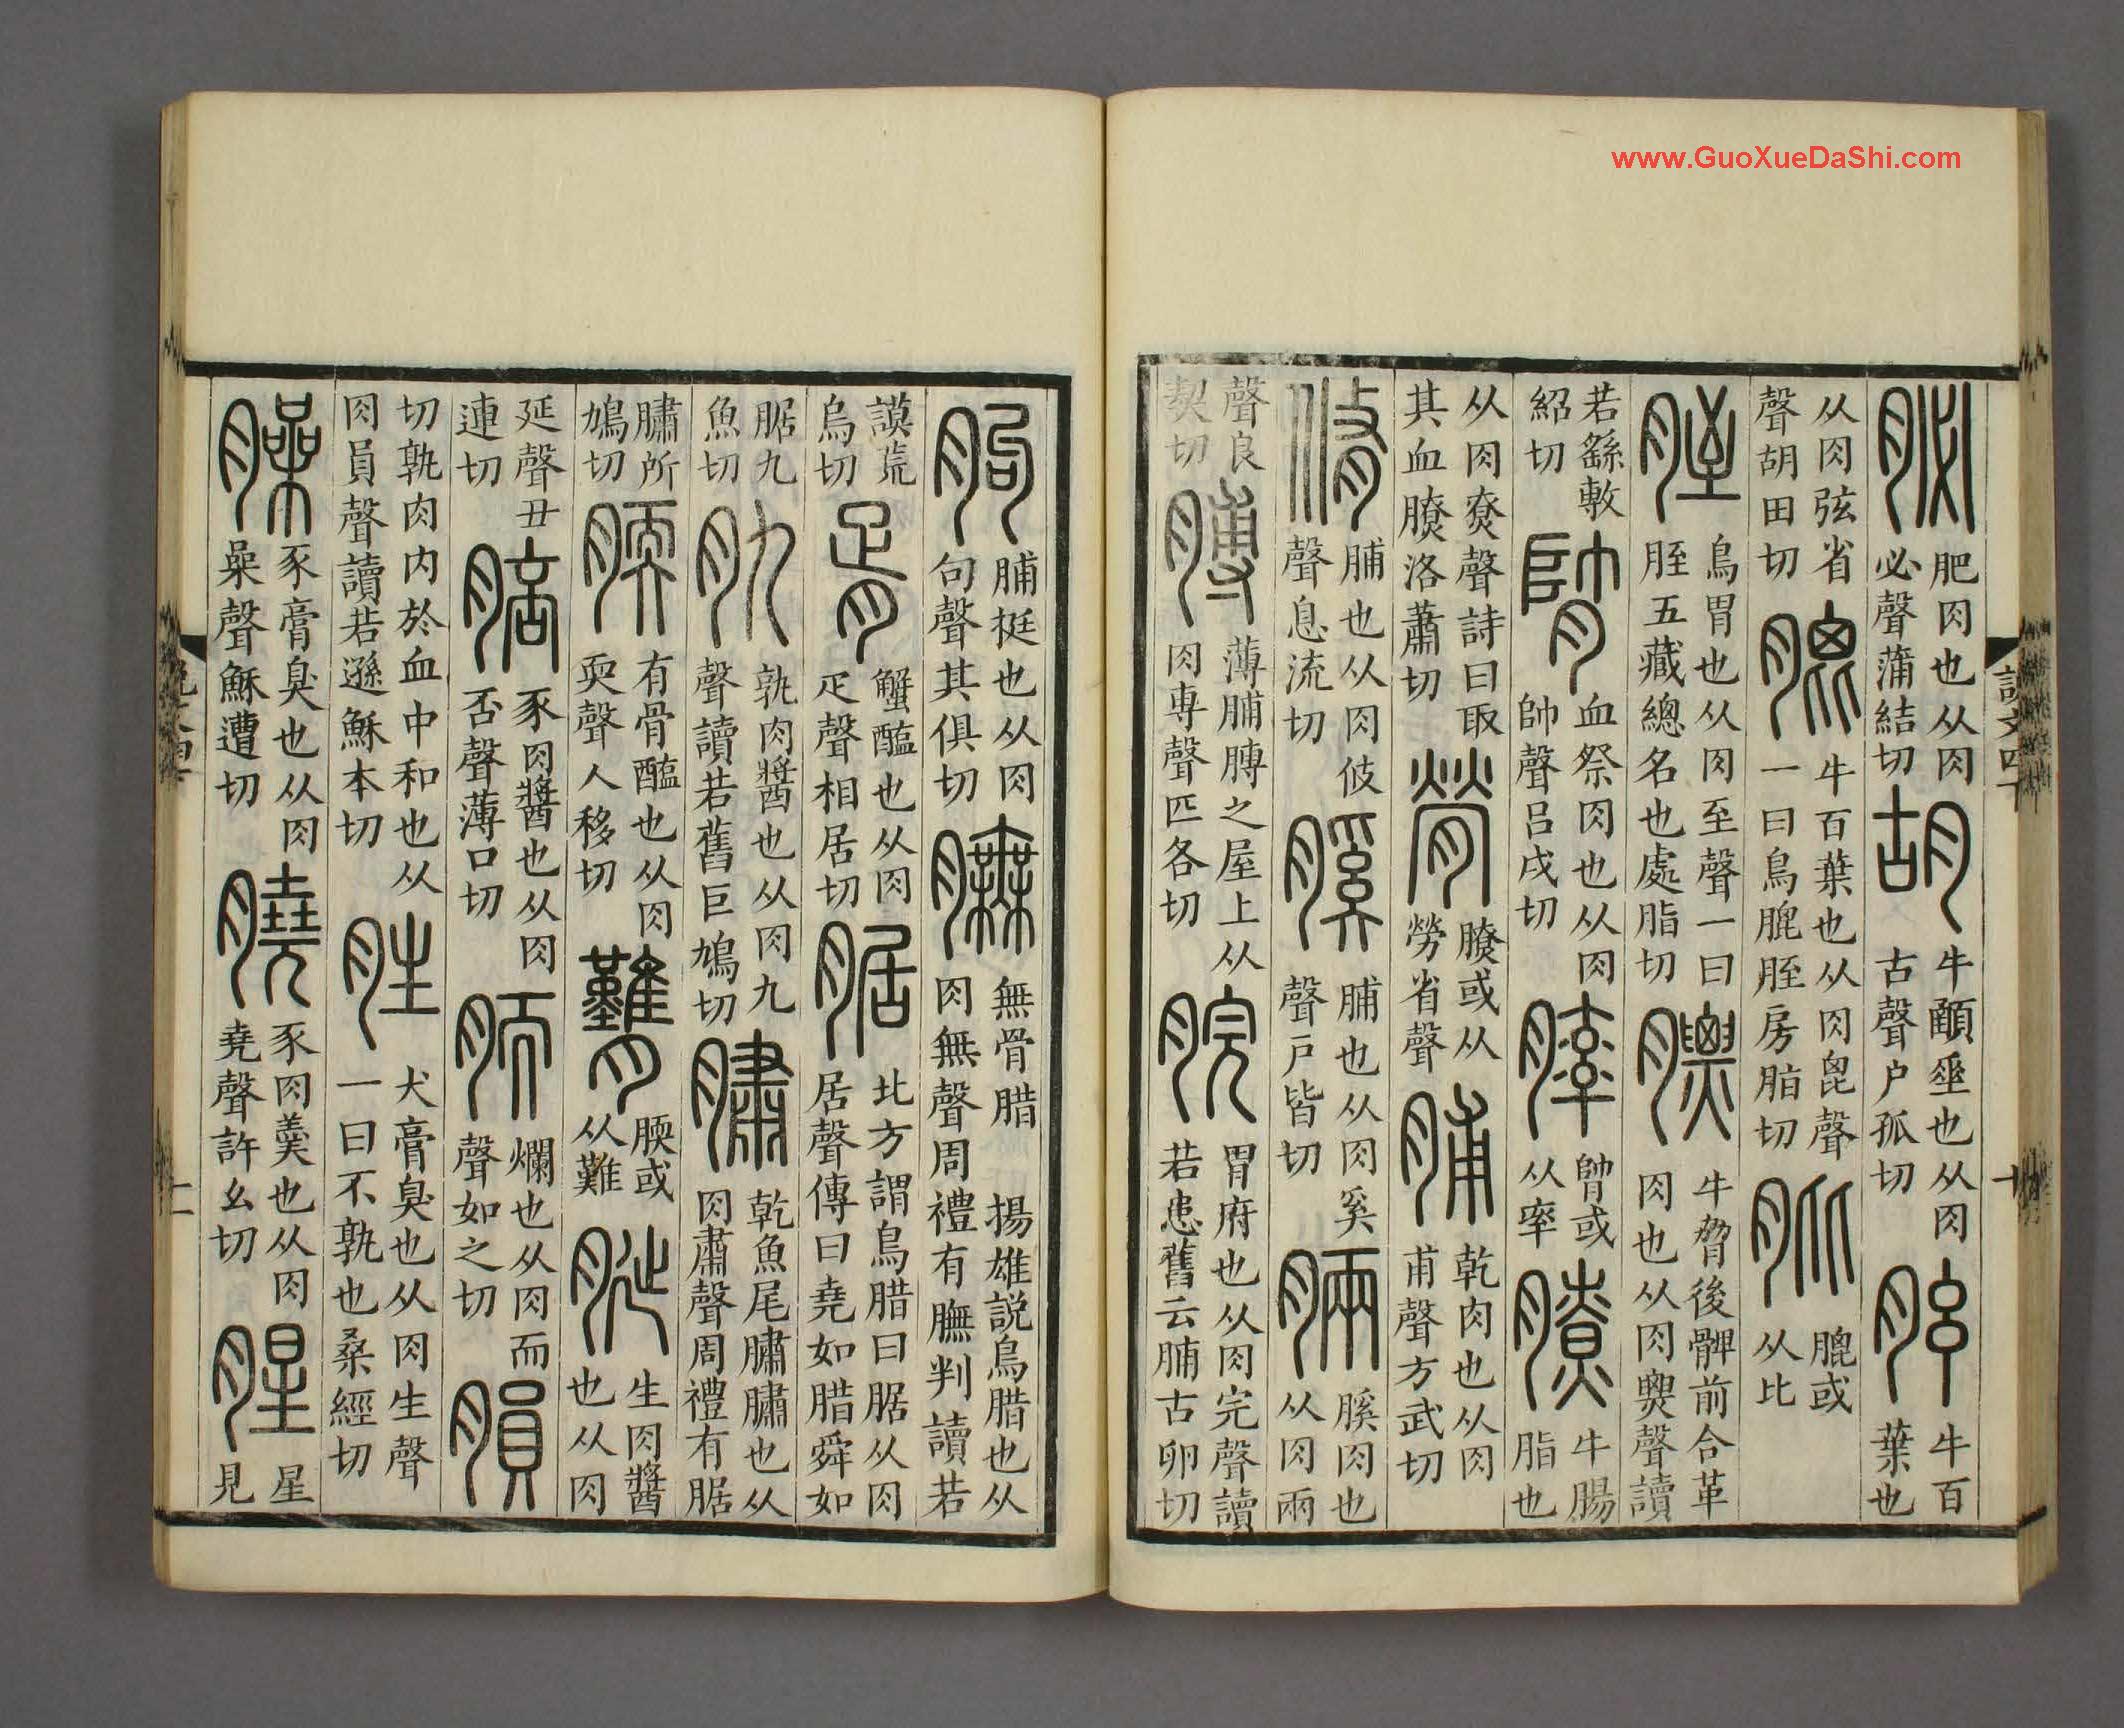 www.GuoXueDaShi.com
説文四下
十
䏟肥肉也从肉必聲蒲結切胡牛顄垂也从肉古聲户孤切胘牛百葉也
从肉弦省聲胡田切膍牛百葉也从肉毘聲一曰鳥膍胵房脂切肶膍或从比
胵鳥胃也从肉至聲一曰胵五藏總名也處脂切膘牛脅後髀前合革肉也从肉㶾聲讀
若繇敷紹切血祭肉也从肉帥聲吕戌切膟或从率膫牛腸脂也
从肉尞聲詩曰取其血膫洛蕭切膋膫或从勞省聲脯乾肉也从肉甫聲方武切
脩脯也从肉攸聲息流切膎脯也从肉奚聲户皆切脼膎肉也从肉兩
聲良切膊薄脯膊之屋上从肉尃聲匹各切脘胃府也从肉完聲讀若患舊云脯古卵切
朐脯挺也从肉句聲其俱切膴無骨腊揚雄説鳥腊也从肉無聲周禮有膴判讀若
謨荒烏切胥蟹醢也从肉疋聲相居切腒北方謂鳥腊曰腒从肉居聲傳曰堯如腊舜如
腒九魚切肍孰肉醬也从肉九聲讀若舊巨鳩切䐹乾魚尾䐹䐹也从肉肅聲周禮有腒
䐹所鳩切腝有骨醢也从肉耎聲人移切腝或从難脠生肉醬也从肉
延聲丑連切䏽豕肉醬也从肉否聲薄口切胹爛也从肉而聲如之切䐣
切孰肉内於血中和也从肉員聲讀若遜穌本切胜犬膏臭也从肉生聲一曰不孰也桑經切
臊豕膏臭也从肉喿聲穌遭切膮豕肉羹也从肉堯聲許幺切腥星見